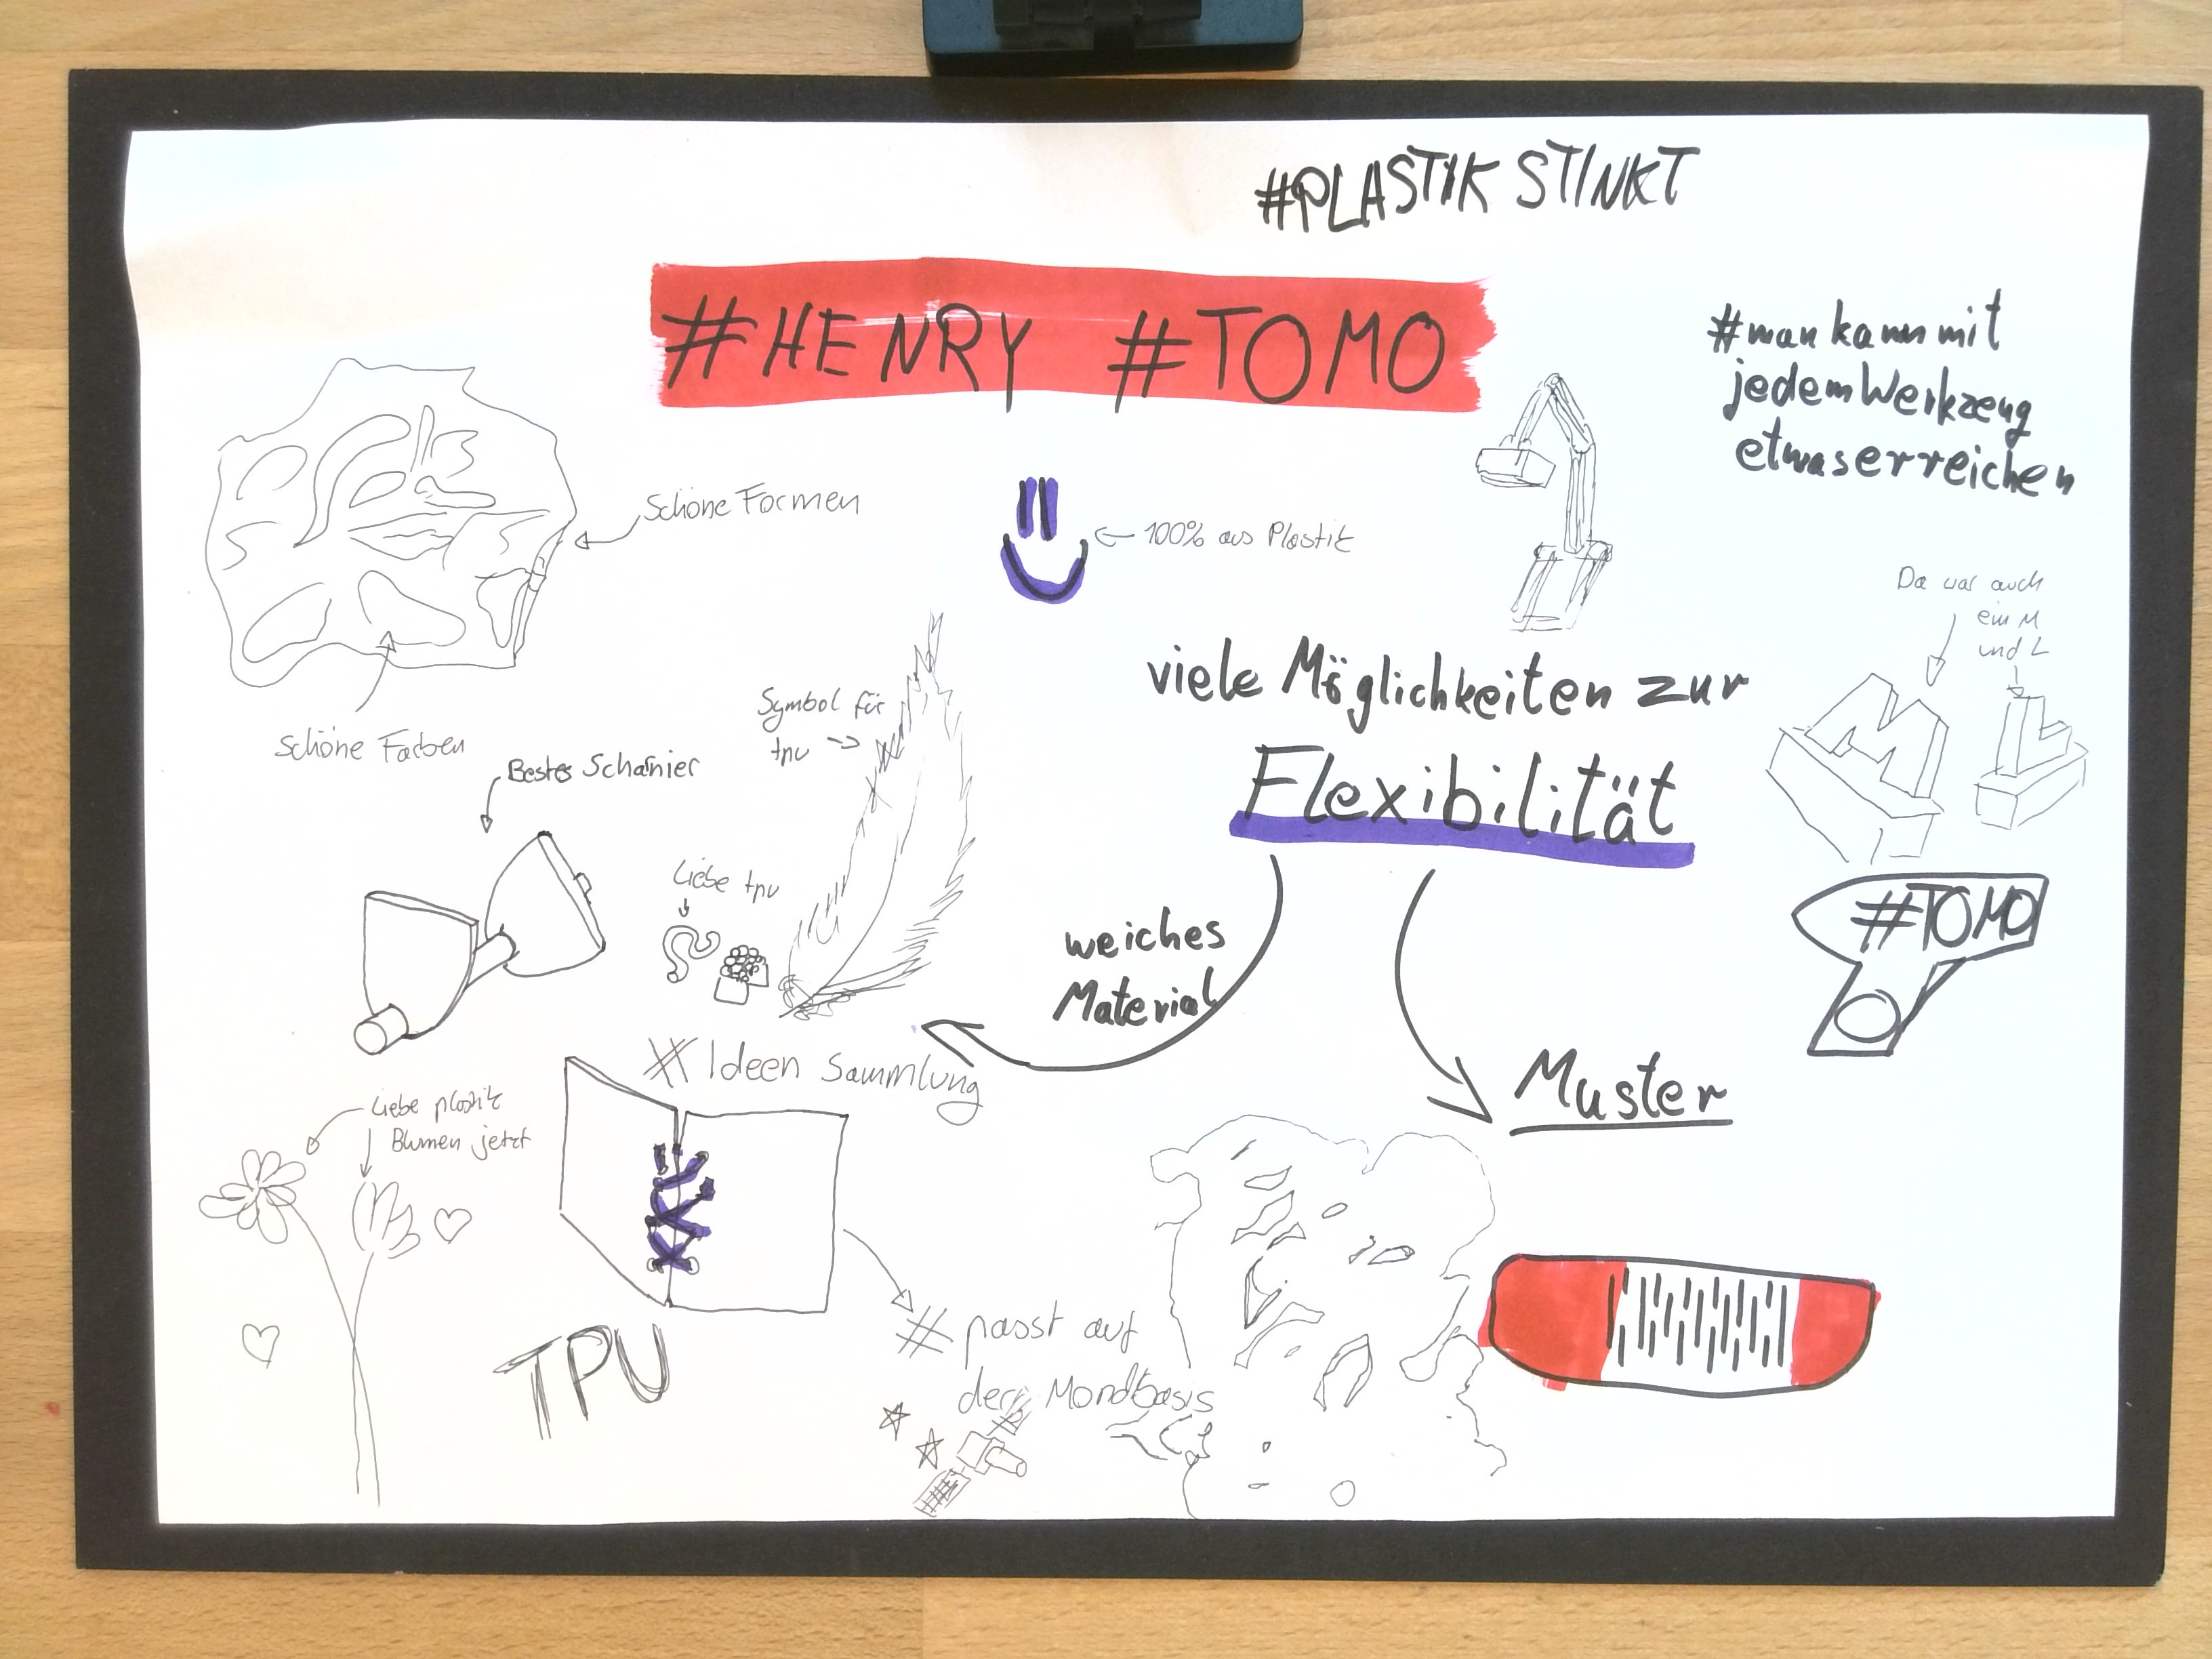 #PLASTIK STINKT
#HENRY #TOMO
#man kann mit
jedem Werkzeug
etwas erreichen
Schöne Formen
100% aus Plastik
Da war auch
ein M
und L
Schöne Farben
Symbol für
tpu
viele Möglichkeiten zur
Flexibilität
M L
Bestes Scharnier
Liebe tpu
#TOMO
weiches
Material
# Ideen Sammlung
Muster
Liebe plastik
Blumen jetzt
TPU
# passt auf
der Mondbasis